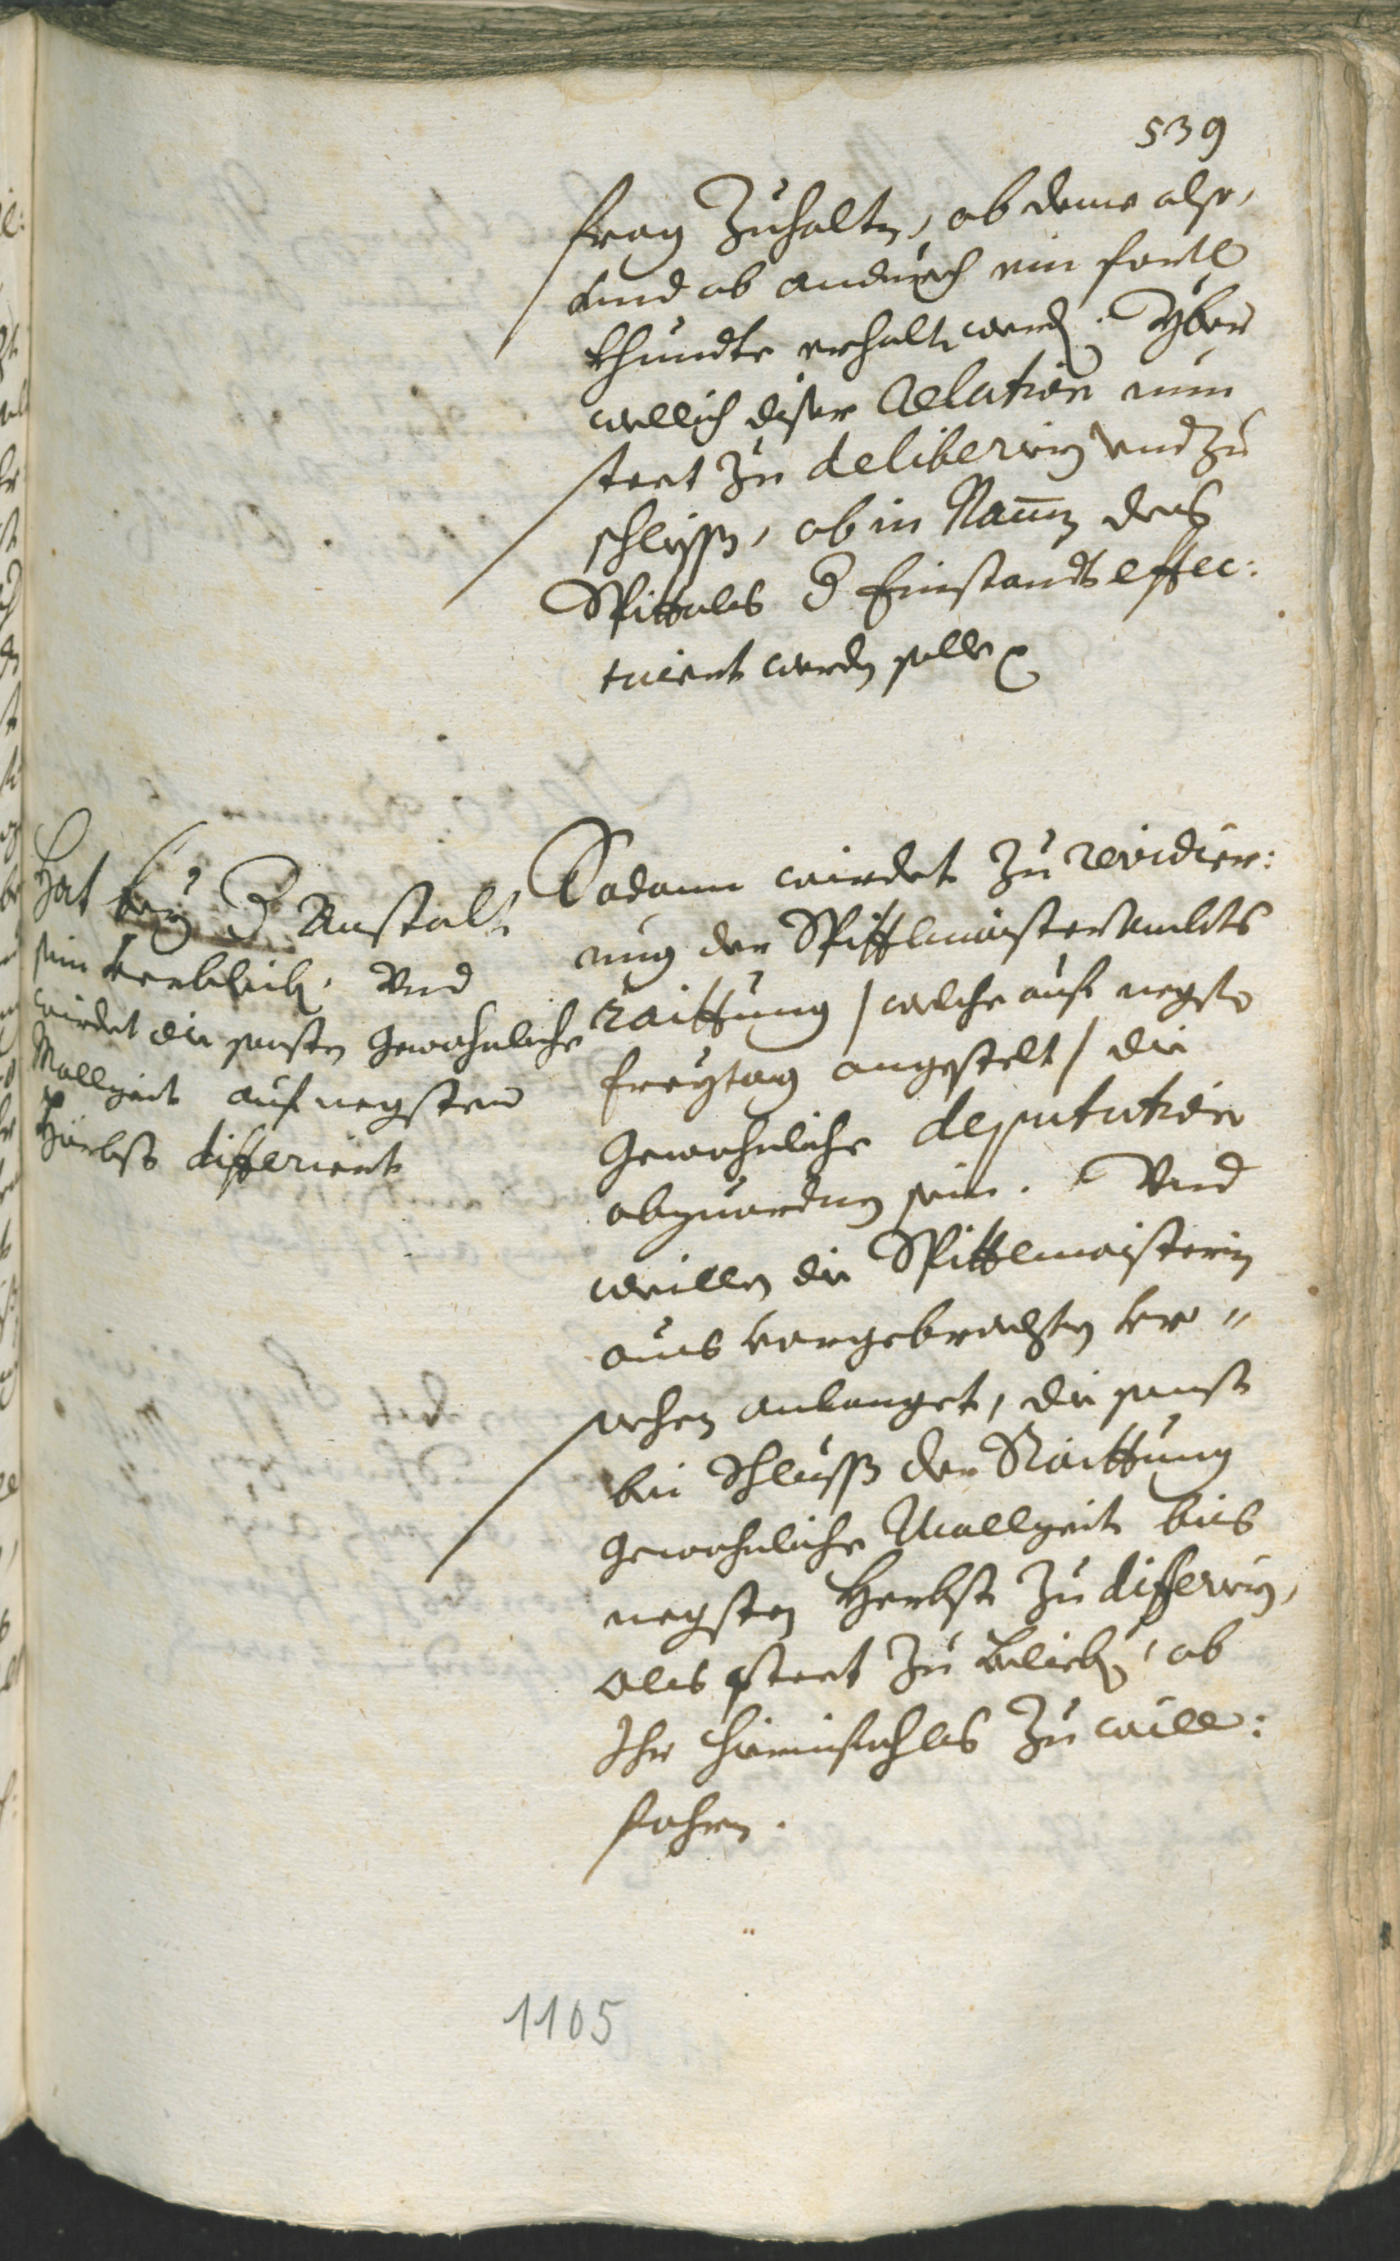 539
frag Zuhalten, ob deme also,
und ob andurch ein fortl
khundte erhalten werden. Yber
wellich diser Relation nun
steet Zu deliberirn und zu
schliessen, ob in Namen dess
Spittales der Einstandt effec:
tuiert werden solle
Hat bey der Anstalt
sein verbleiben. Und
wirdet die sonsten gewohnliche
Mallzeit auf negsten
Hörbst differiert
Sodann wirdet Zu revidier:
ung der Spittlmaisterambts
raittung / welche auf negst
Freytag angestelt / die
gewohnliche deputation
abzuordnen sein. Und
weillen die Spittlmaisterin
aus vorgebrachten ver"
sachen anlanget, die sonst
bei Schluss der Raittung
gewohnliche Mallzeit bis
negsten Herbst Zu differirn,
als steet Zu belieben, ob
Ihr hierinfahls Zu will:
fahren.
1105